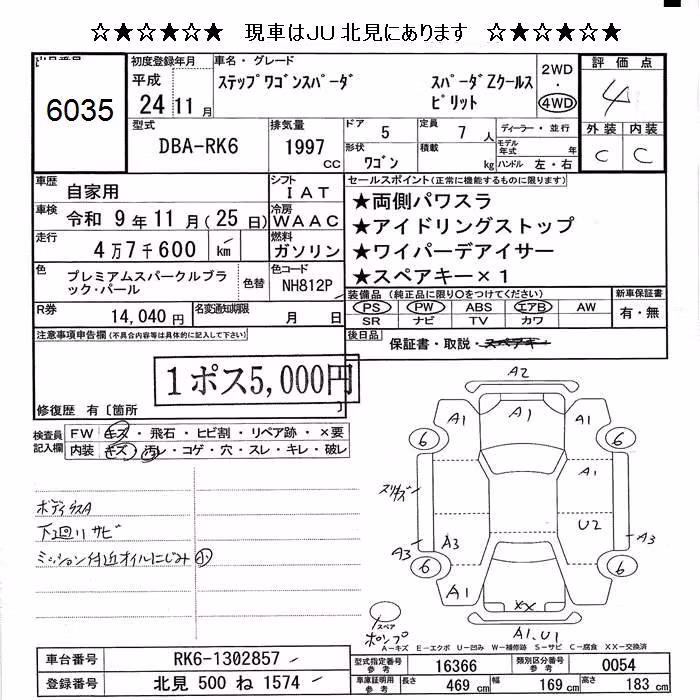 ☆★☆★☆★ 現車はJU北見にあります ☆★☆★☆★
6035
初度登録年月
平成
24 11 月
車名・グレード
ステップワゴンスパーダ スパーダZクールス
ピリット
2WD
・
4WD
評価点
4
外装 内装
C C
型式
DBA-RK6
排気量
1997
CC
ドア 5
定員 7 人
形状
ワゴン
積載 kg
ディーラー・並行
モデル
年式 年
ハンドル 左・右
車歴 自家用
シフト IAT
車検 令和 9年 11月(25日)
冷房 WAAC
走行 4万7千600 km
燃料 ガソリン
色 プレミアムスパークルブラ
ック・パール
色替
色コード
NH812P
R券 14,040円
名変通知期限
月 日
セールスポイント(正常に機能するものに限ります)
★両側パワスラ
★アイドリングストップ
★ワイパーデアイサー
★スペアキー×1
装備品(純正品に限り○をつけてください)
PS PW ABS エアB AW
SR ナビ TV カワ
新車保証書
有・無
後日品
保証書・取説・スペアキー
注意事項申告欄(不具合内容等は具体的に記入して下さい)
1ポス5,000円
修復歴 有〔箇所 〕
検査員
記入欄
FW キズ・飛石・ヒビ割・リペア跡・×要
内装 キズ・汚レ・コゲ・穴・スレ・キレ・破レ
ボディウスA
下回りサビ
ミッション付近オイルにじみ小
A2
A1 A1 A1
6 6
スリキズ
A1
U2
A3 A3 A3
6 6
A1
××
A1,U1
スペア
ポンプ
A-キズ E-エクボ U-凹み W-補修跡 S-サビ C-腐食 XX-交換済
車台番号 RK6-1302857
登録番号 北見 500 ね 1574
型式指定番号
参考
16366
類別区分番号
参考
0054
車庫証明用
参考
長さ 469 cm
幅 169 cm
高さ 183 cm